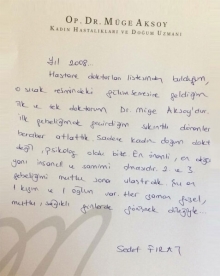 OP. DR. MÜGE AKSOY
KADIN HASTALIKLARI VE DOĞUM UZMANI
Yıl 2008..
Hastane doktorları listesinden bulduğum,
o sıcak resmindeki gülümsemesine geldiğim
ilk ve tek doktorum Dr. Müge Aksoy'dur.
İlk gebeliğimde geçirdiğim sıkıntılı dönemleri
beraber atlattık. Sadece kadın doğum doktoru
değil, psikolog oldu bize. En önemli, en değer
insancıl ve samimi 2. ve 3.
gebeliğimi mutlu sona ulaştırdık. Şu an
1 kızım ve 1 oğlum var. Her zaman güzel,
mutlu, sağlıklı günlerde görüşmek dileğiyle...
Sedef FIRAT